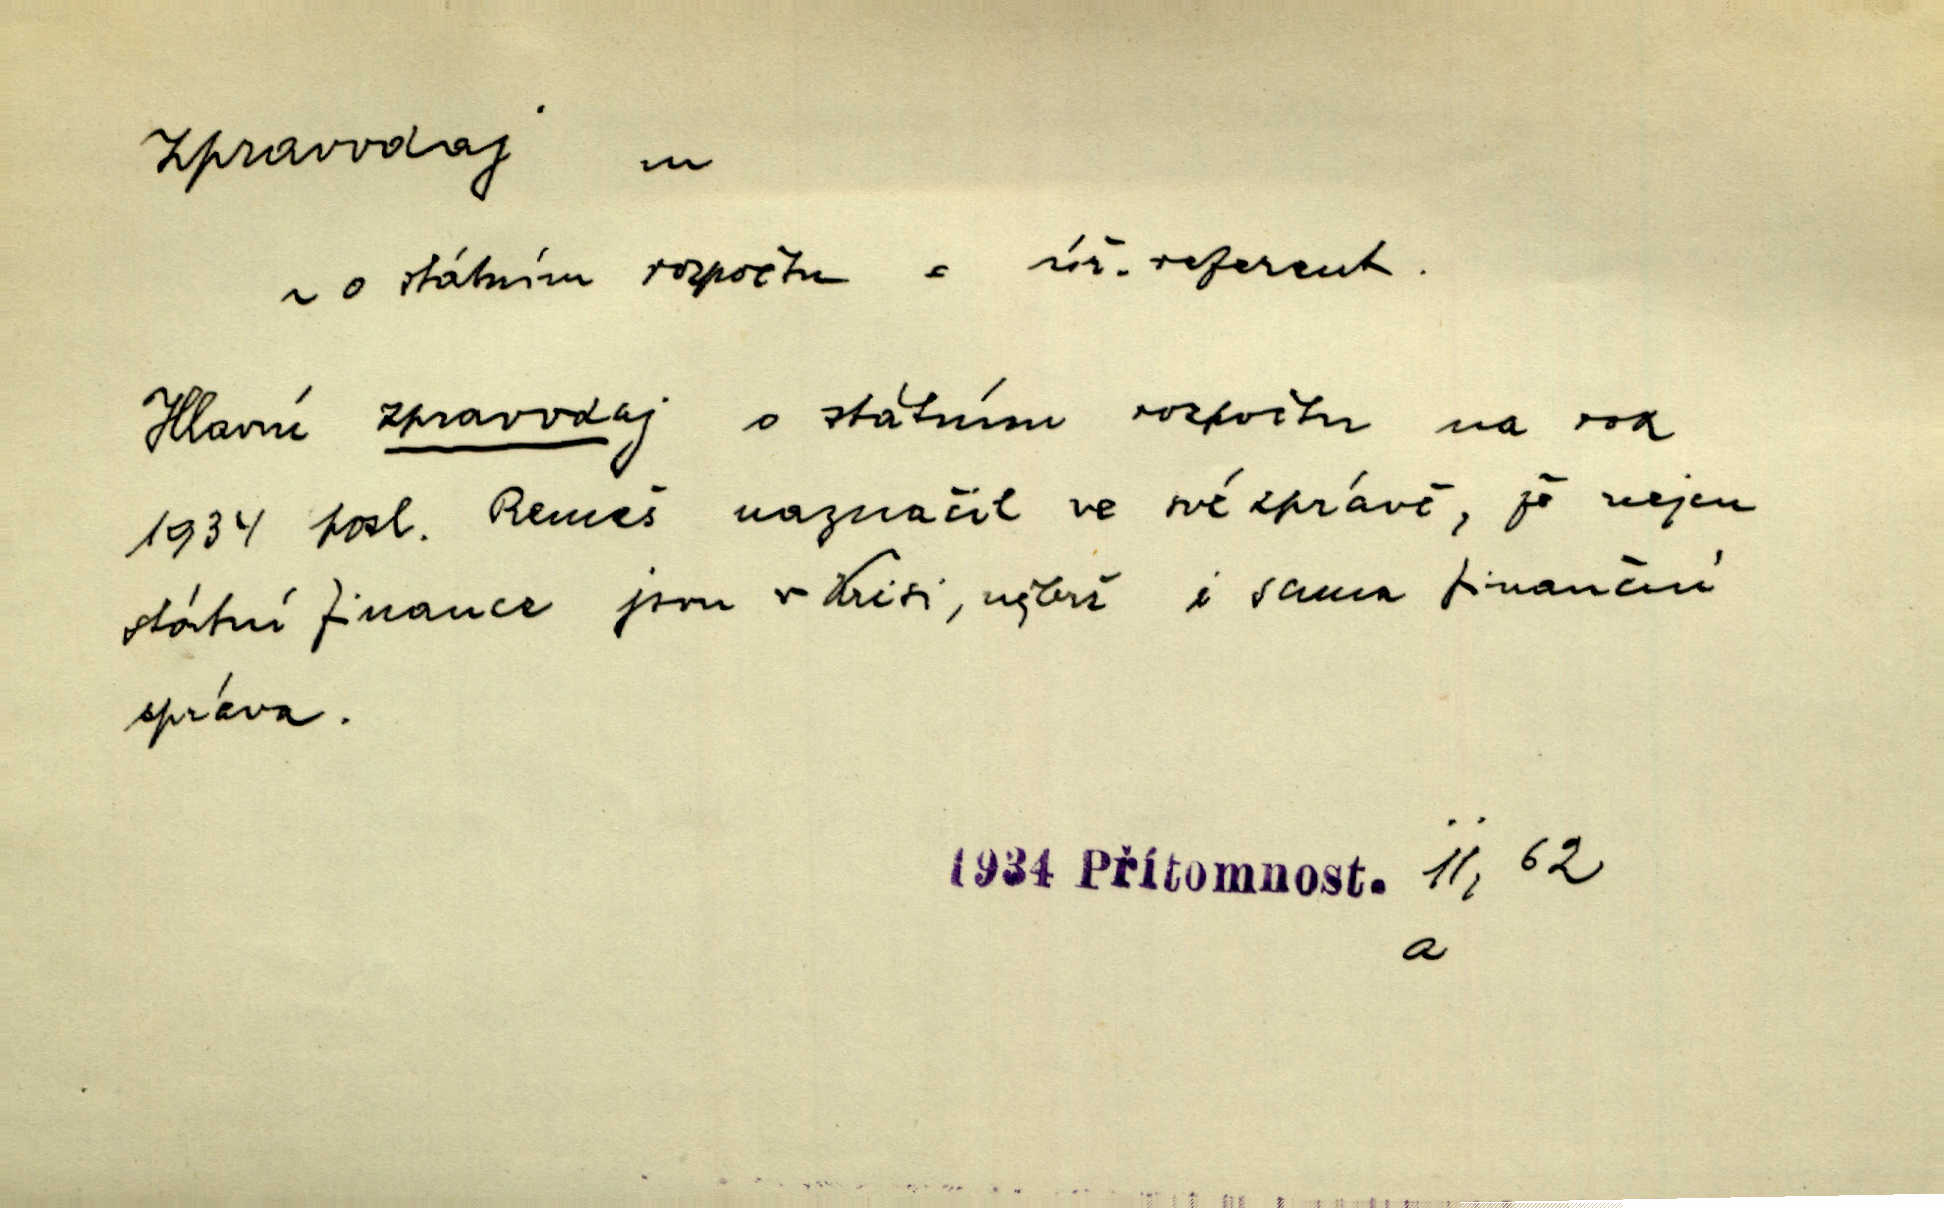 Zpravodaj m
~ o státním rozpočtu = úř. referent.
Hlavní zpravodaj o státním rozpočtu na rok
1934 posl. Remeš naznačil ve své zprávě, že nejen
státní finance jsou v krisi, nýbrž i sama finanční
správa.
1934 Přítomnost. 11, 62
a